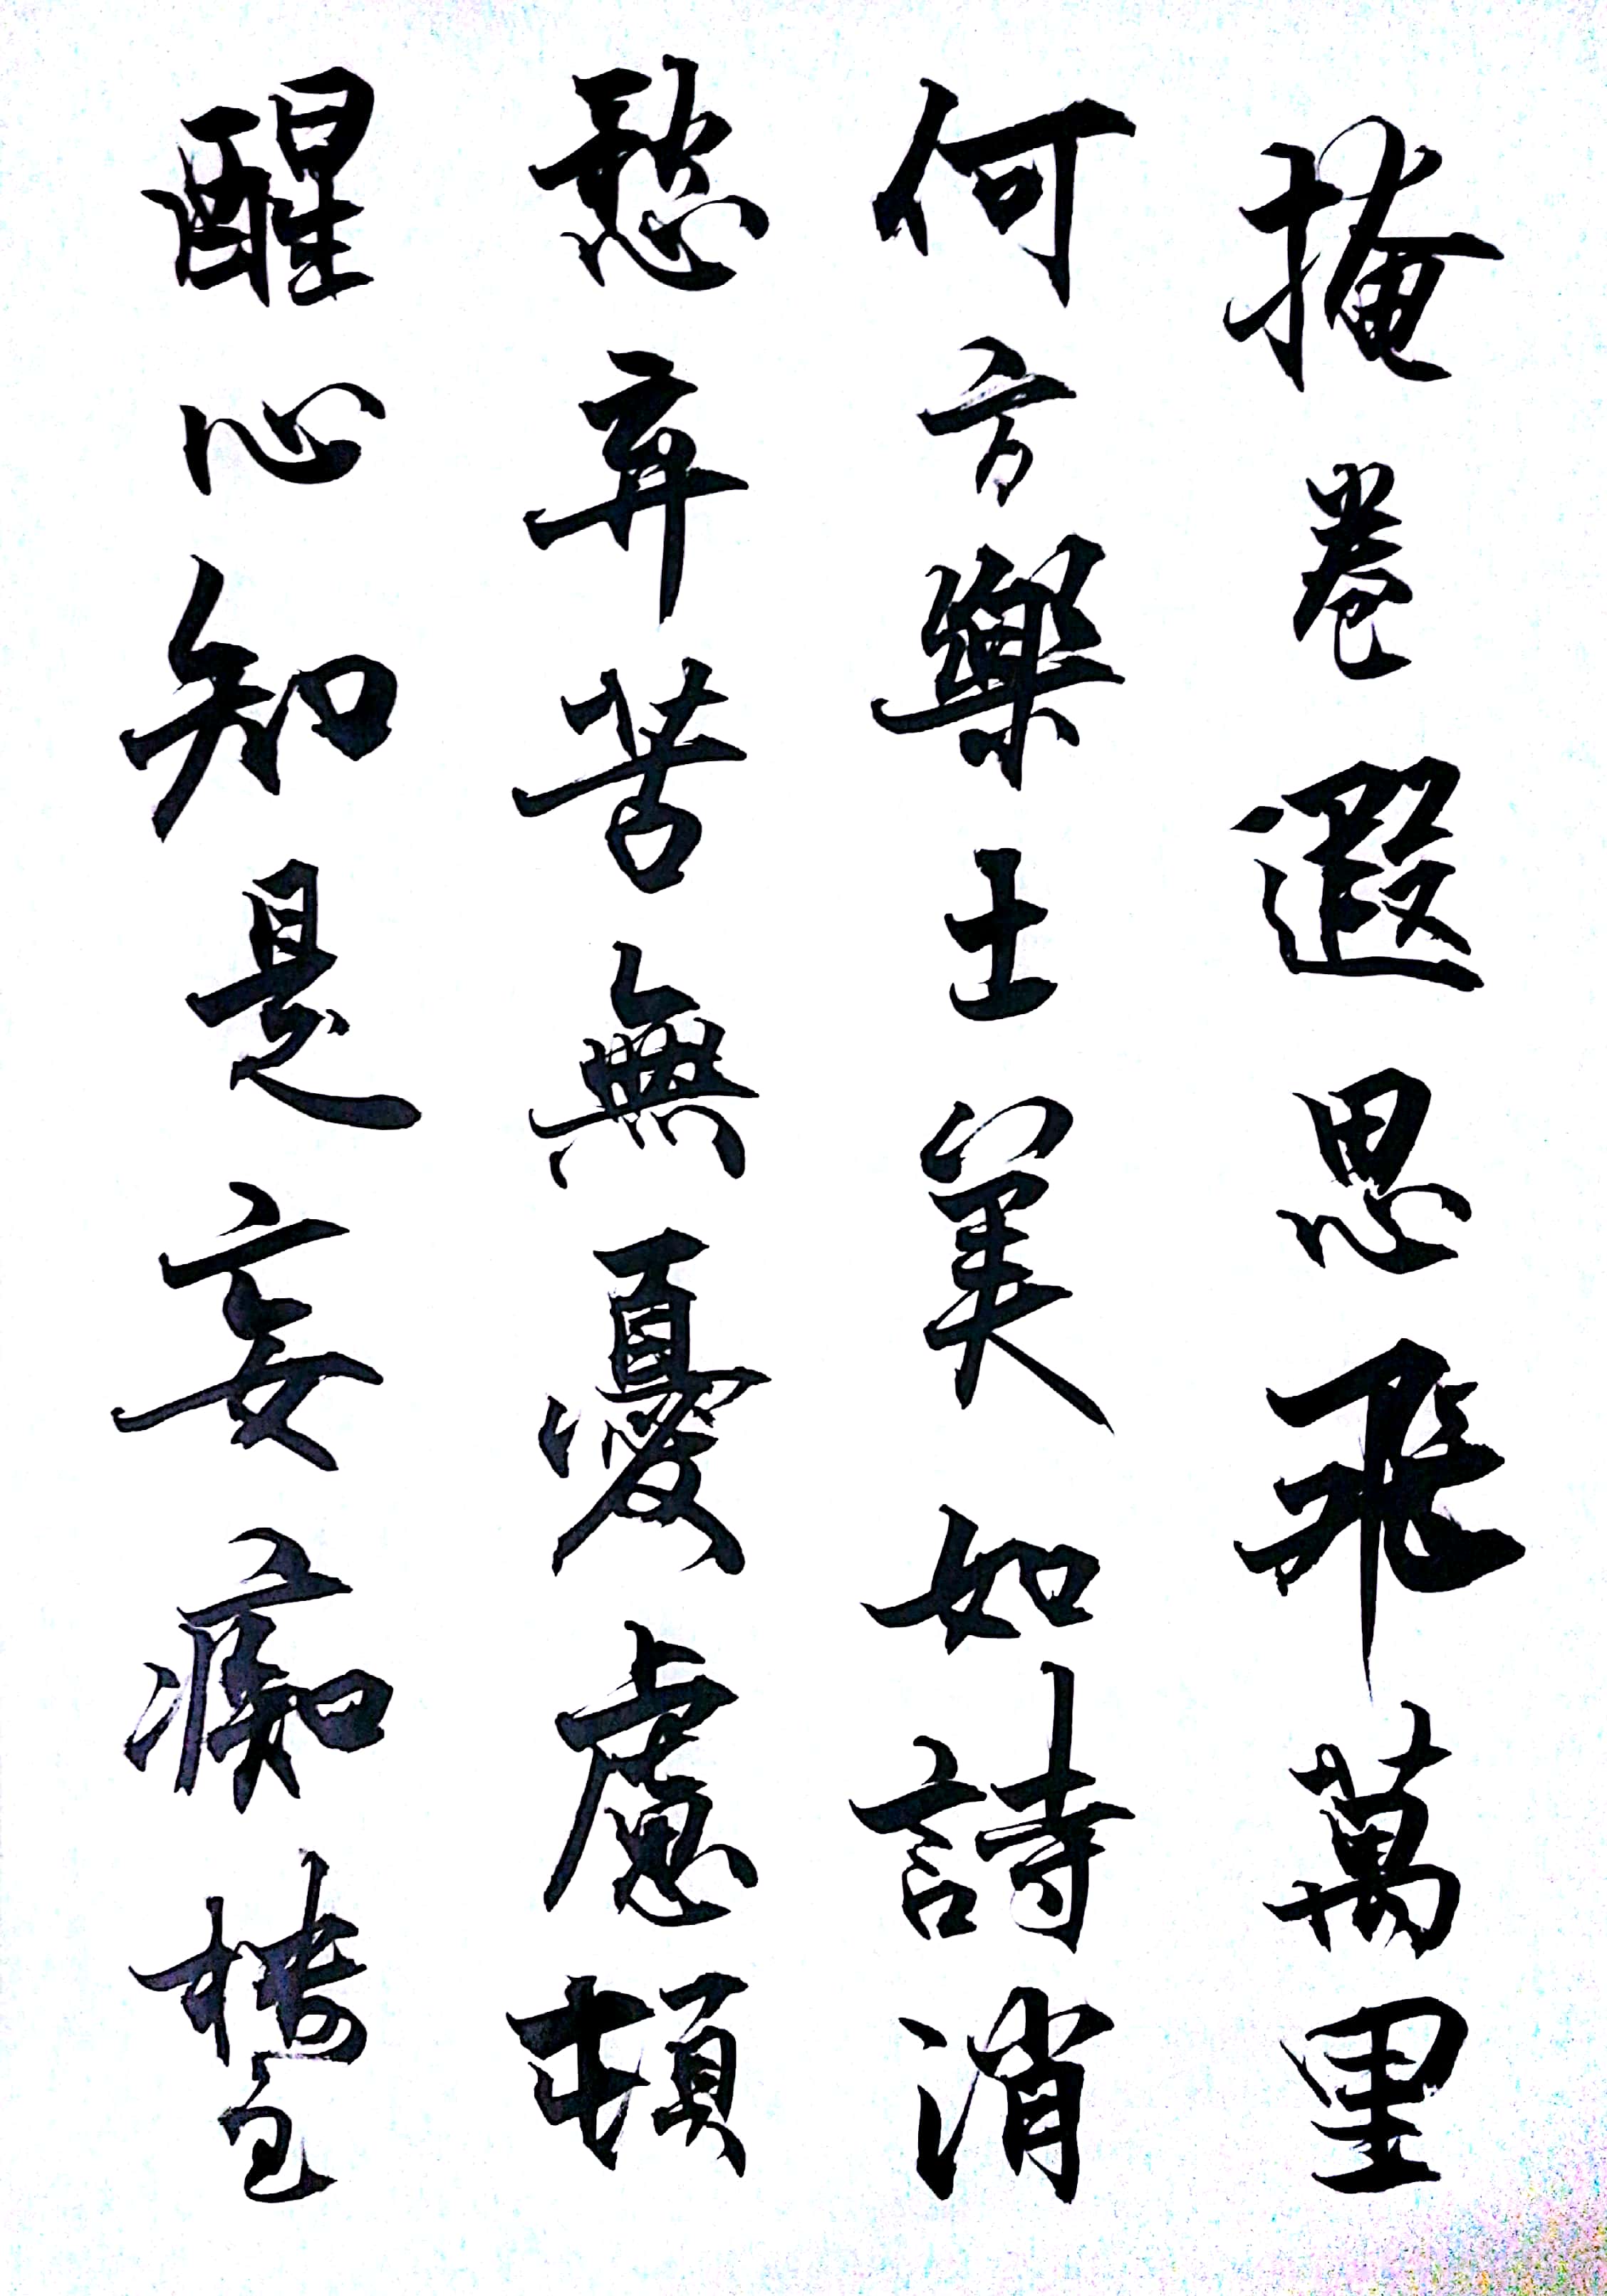 掩卷遐思飛萬里
何方樂土美如詩消
愁弃苦無憂慮頓
醒心知是妄痴